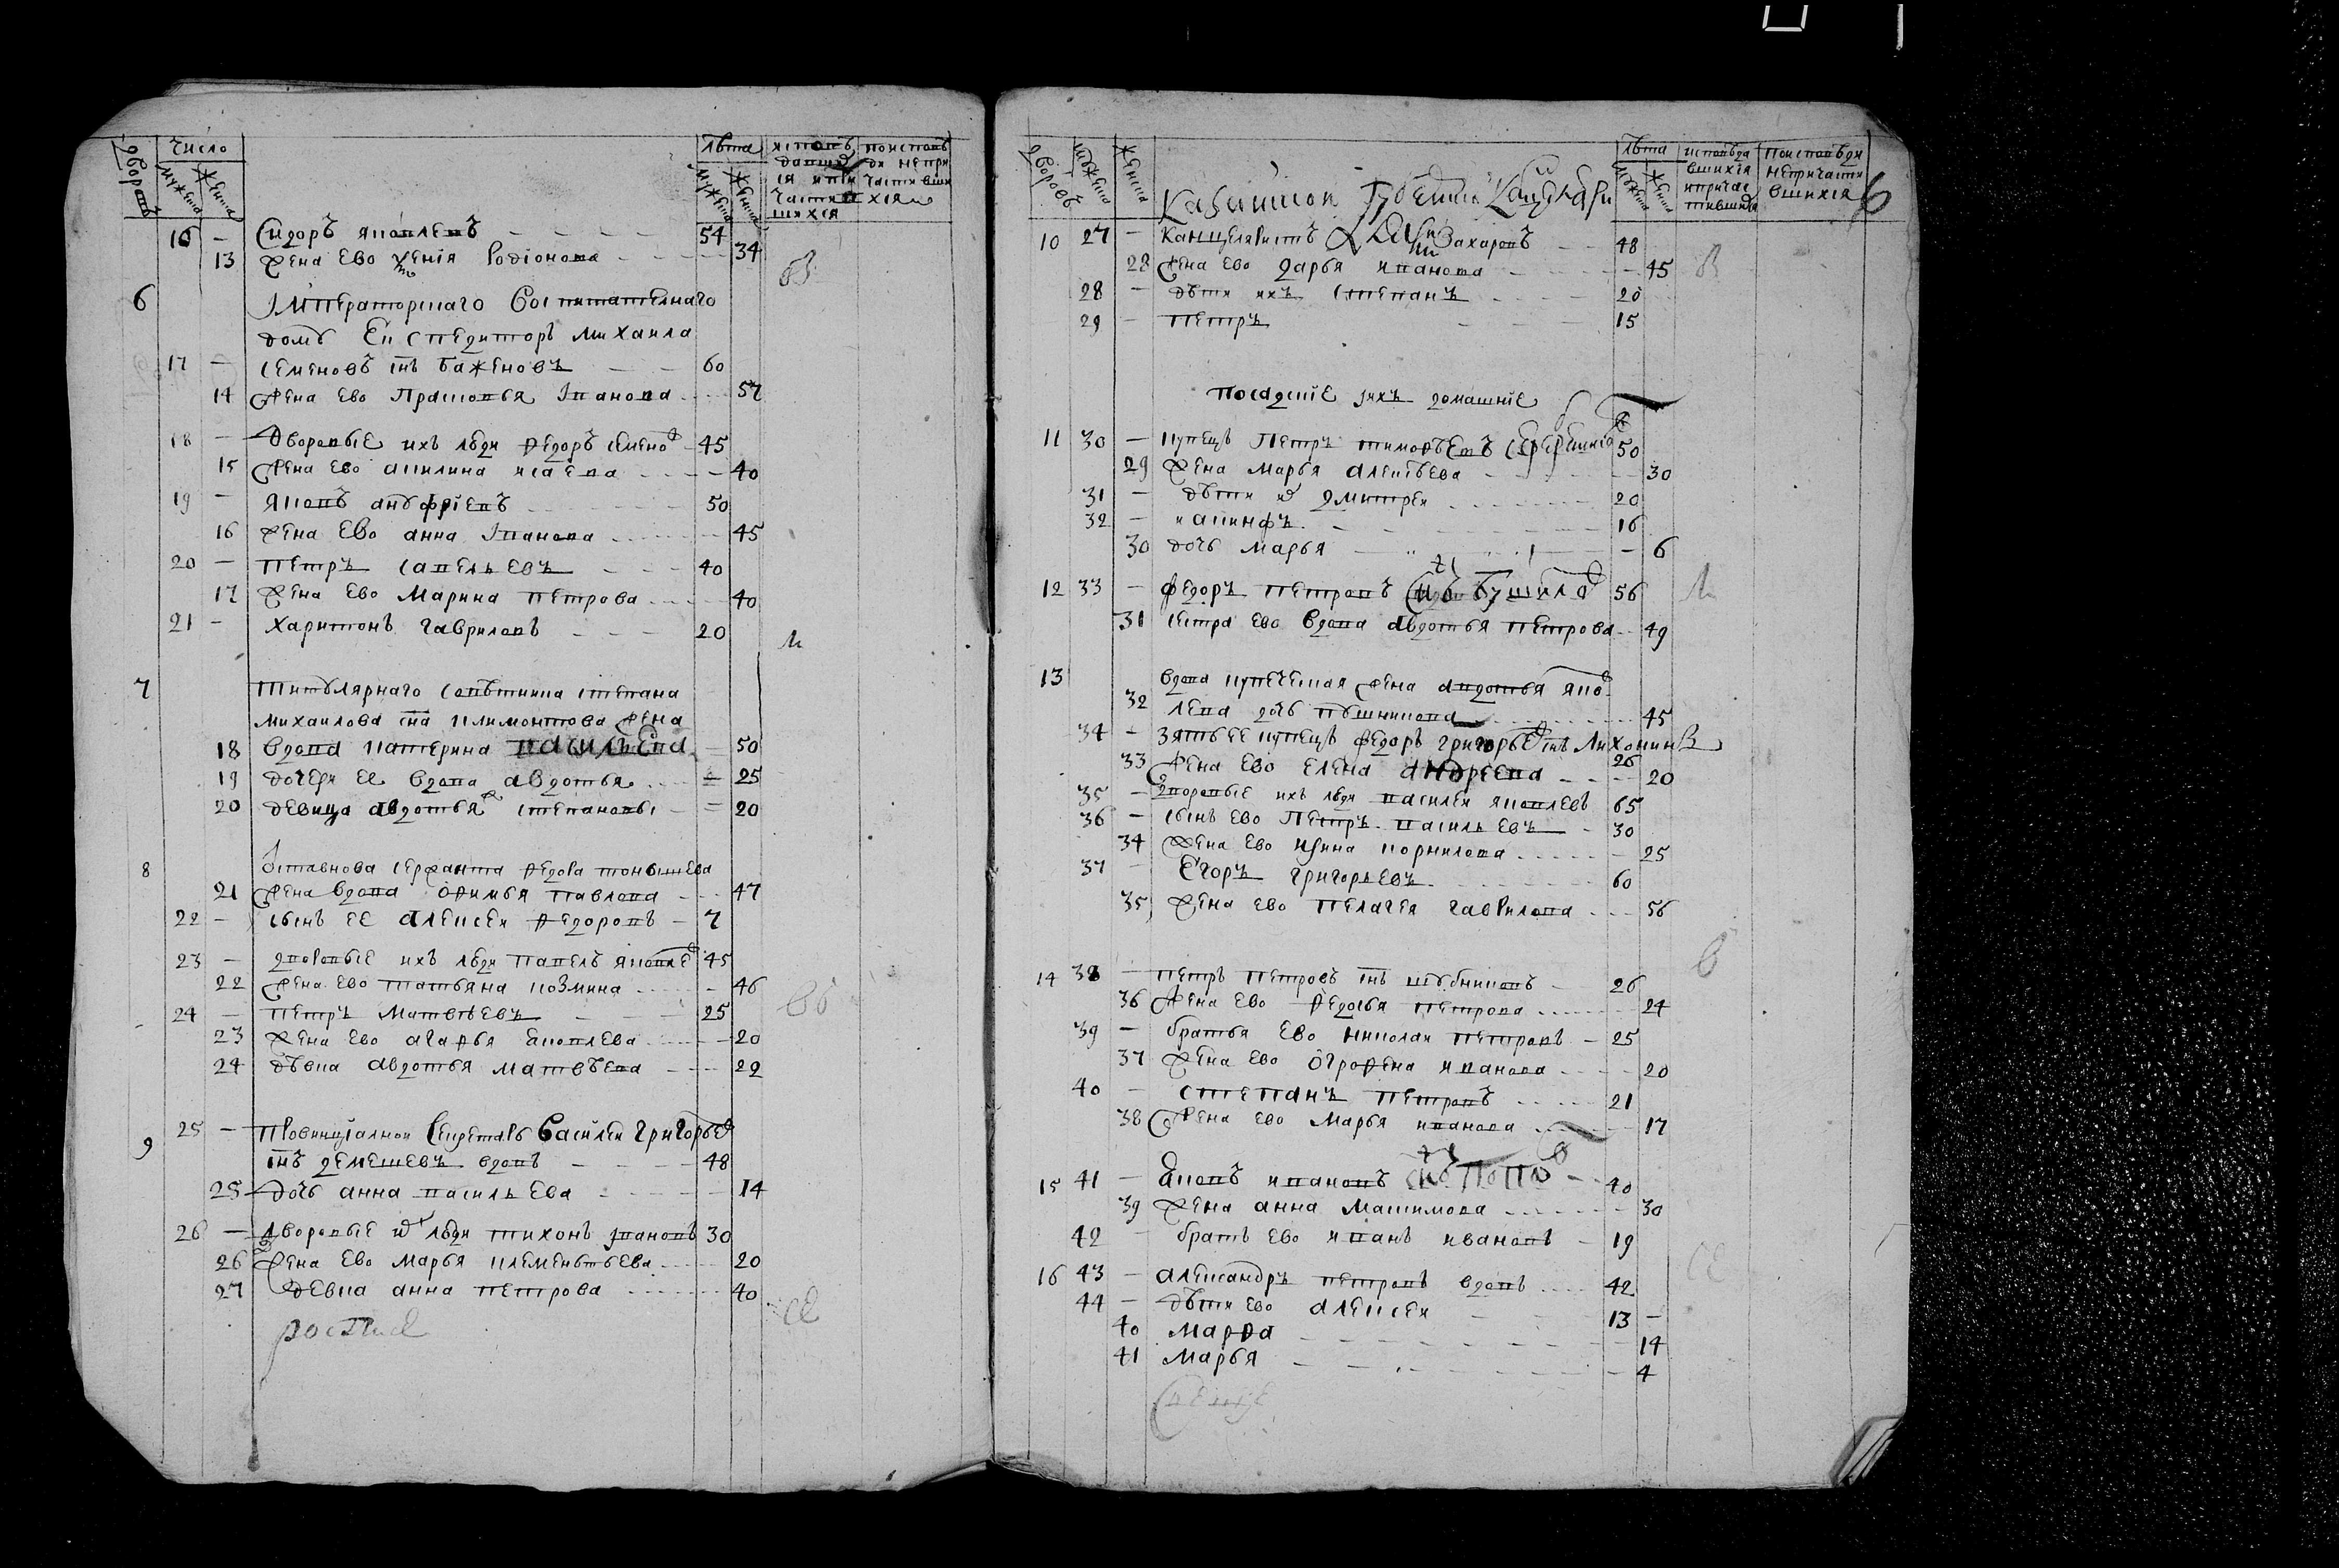 дворовъ число мужеска женска лѣта мужеска женска исповѣдавшияся и причастившихся по исповѣди не причастившихся
16 – Сидоръ яковлевъ – 54
13 жена ево Ксения Родионова – 34
6 Императорского Воспитательнаго
домѣ Експедиторъ Михаила
17 – семеновъ снъ баженовъ – 60
14 жена ево Прасковья Iванова – 57
18 – Дворовые ихъ люди Ѳедоръ семено – 45
15 жена ево акилина исаева – 40
19 – яковъ ануфриевъ – 50
16 жена Ево анна Iванова – 45
20 – петръ савельевъ – 40
17 жена ево Марина петрова – 40
21 – харитонъ гавриловъ – 20
7 титулярнаго совѣтника степана
михаилова сна климонтова жена
18 вдова катерина васильева – 50
19 дочери ее вдова авдотья – 25
20 девица авдотья степановы – 20
8 Отставнова сержанта Ѳедора
21 жена вдова Оѳимья павлова – 47
22 – сынъ ее алексеи Ѳедоровъ – 7
23 – дворовые ихъ люди павелъ яковле 45
22 жена ево татьяна козмина – 46
24 – петръ матвѣевъ – 25
23 жена ево агаѳья яковлева – 20
24 дѣвка авдотья матвѣева – 22
9 25 – Провинциалнои секретарь Василеи григорье
снъ демешевъ вдовъ – 48
25 дочь анна васильева – 14
26 – дворовые их люди тихонъ ивановъ 30
26 жена ево марья клементьева – 20
27 девка анна петрова – 40
дворовъ мужеска женска лѣта мужеска женска исповѣдавшихся и причастившихся по исповѣди не причастившихся 6
10 27 – канцеляристъ захаровъ – 48
28 жена ево дарья иванова – 45
28 – дѣти ихъ степанъ – 20
29 – петръ – 15
посадские и ихъ домашние
11 30 – купецъ петръ тимоѳеевъ – 50
29 жена марья алексѣева – 30
31 – дѣти их дмитреи – 20
32 – иакинфъ – 16
30 дочь марья – 6
12 33 – федоръ петровъ – 56
31 сестра ево вдова авдотья петрова – 49
13 вдова купеческая жена авдотья яко
32 влева дочь – 45
34 – зять ее купецъ федоръ григорьев снъ Лихонинъ 26
33 жена ево елена андреева – 20
35 – дворовые ихъ люди василеи яковлевъ 65
36 – сынъ ево петръ васильевъ – 30
34 жена ево ирина корнилова – 25
37 – Егоръ григорьевъ – 60
35 жена ево пелагея гаврилова – 56
14 38 – петръ петровъ снъ – 26
36 жена ево Ѳедосья петрова – 24
39 – братья ево николаи петровъ – 25
37 жена ево ограѳена иванова – 20
40 – степанъ петровъ – 21
38 жена ево марья иванова – 17
15 41 – яковъ ивановъ – 40
39 жена анна максимова – 30
42 – братъ ево иванъ ивановъ – 19
16 43 – александръ петровъ вдовъ – 42
44 – дѣти ево алексеи – 13 –
40 марѳа – 14
41 марья – 4